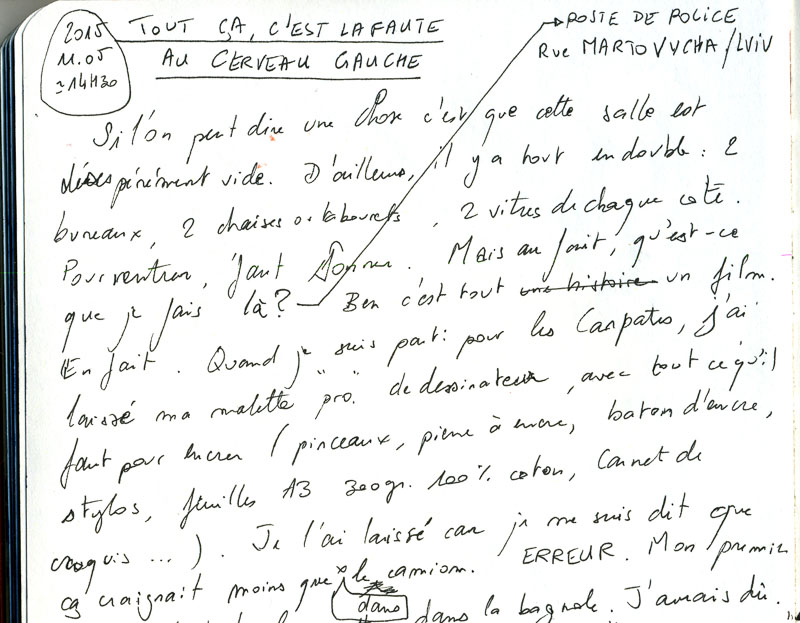 2015
11.05
≈14H30
TOUT ÇA, C'EST LA FAUTE
AU CERVEAU GAUCHE
POSTE DE POLICE
Rue MARTOVYCHA / LVIV
Si l'on peut dire une chose c'est que cette salle est
désespérément vide. D'ailleurs, il y a tout en double : 2
bureaux, 2 chaises ou tabourets, 2 vitres de chaque coté.
Pour rentrer, faut sonner. Mais au fait, qu'est-ce
que je fais là ? Ben c'est tout une histoire un film.
En fait. Quand je suis parti pour les Carpates, j'ai
laissé ma malette "pro" de dessinateur, avec tout ce qu'il
faut pour encrer (pinceaux, pierre à encre, baton d'encre,
stylos, feuilles A3 300gr. 100% coton, carnet de
croquis ...). Je l'ai laissé car je me suis dit que
ça craignait moins que le camion. ERREUR. Mon premier
dans dans la bagnole. J'aurais dû.